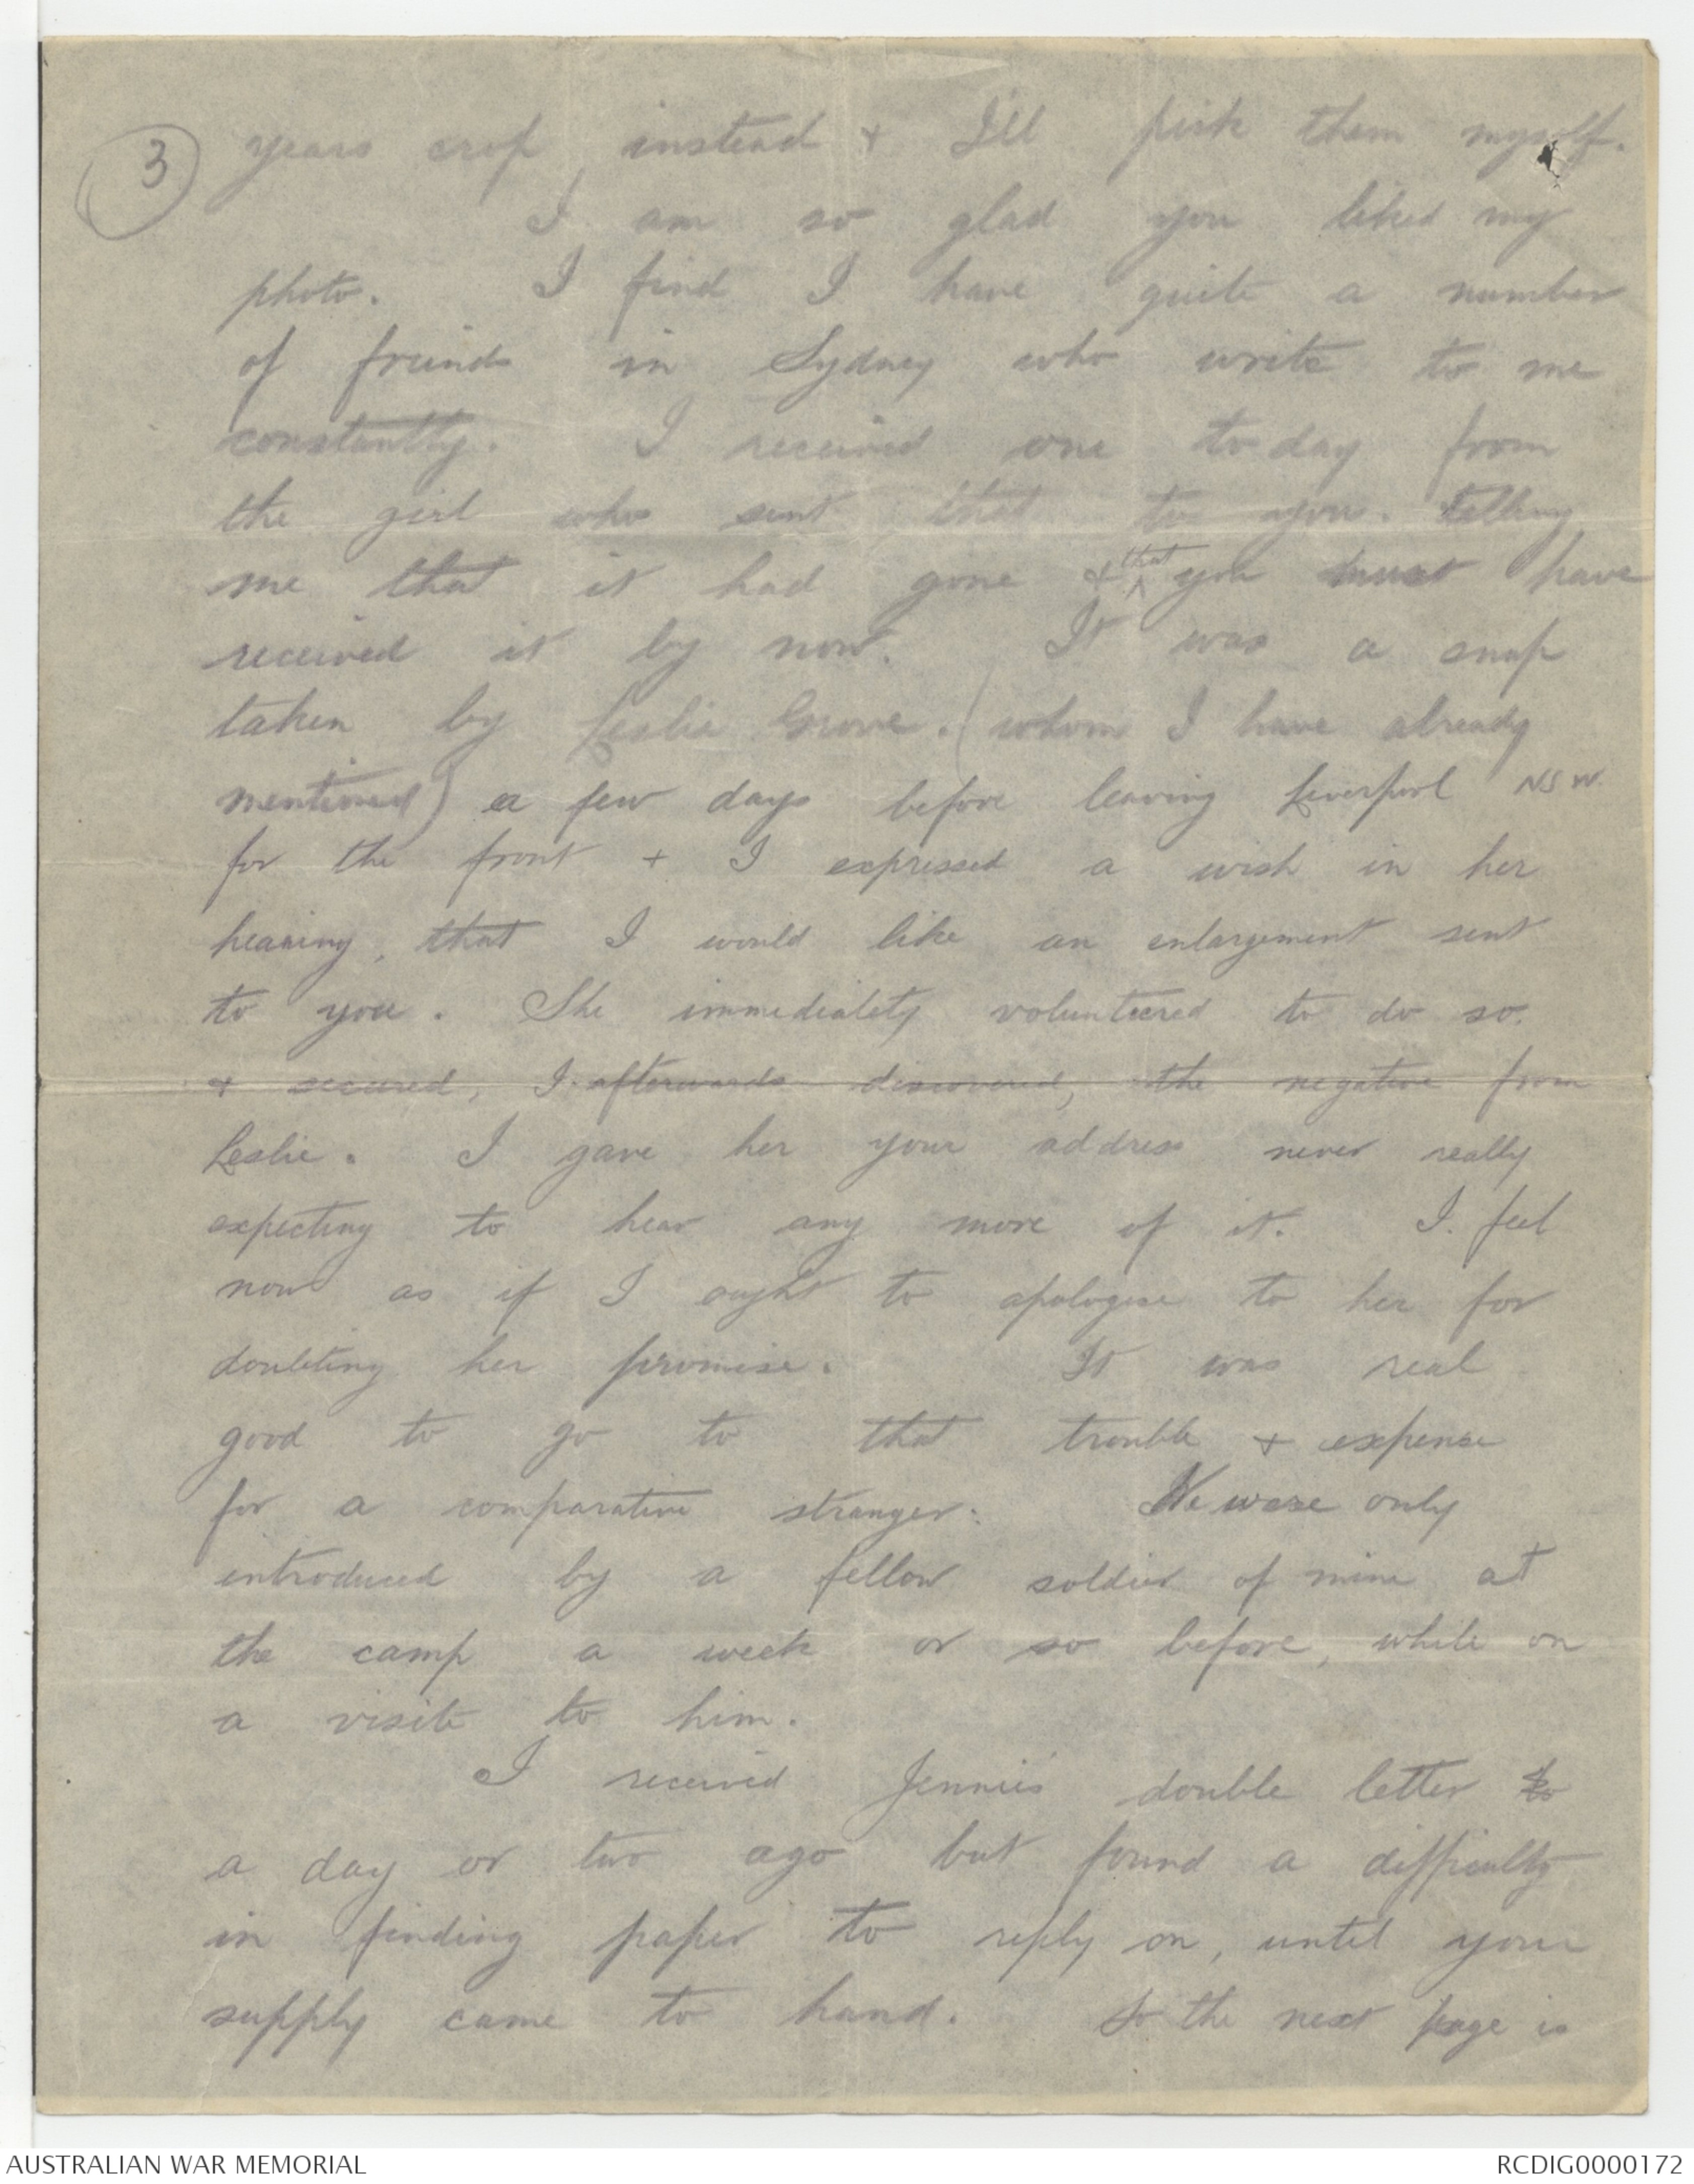 3
years crop instead & I'll pick them myself.
I am so glad you liked my
photo. I find I have quite a number
of friends in Sydney who write to me
constantly. I received one today from
the girl who sent that to you. telling
me that it had gone & that you must have
received it by now. It was a snap
taken by Leslie Grove. (whom I have already
mentioned) a few days before leaving Liverpool NSW.
for the front + I expressed a wish in her
hearing, that I would like an enlargement sent
to you. She immediately volunteered to do so.
+ secured, I afterwards discovered, the negative from
Leslie. I gave her your address never really
expecting to hear any more of it. I feel
now as if I ought to apologise to her for
doubting her promise. It was real
good to go to that trouble + expense
for a comparative stranger. We were only
introduced by a fellow soldier of mine at
the camp a week or so before, while on
a visit to him.
I received Jennie's double letter to
a day or two ago but found a difficulty
in finding paper to reply on, until your
supply came to hand. So the next page is
AUSTRALIAN WAR MEMORIAL
RCDIG0000172